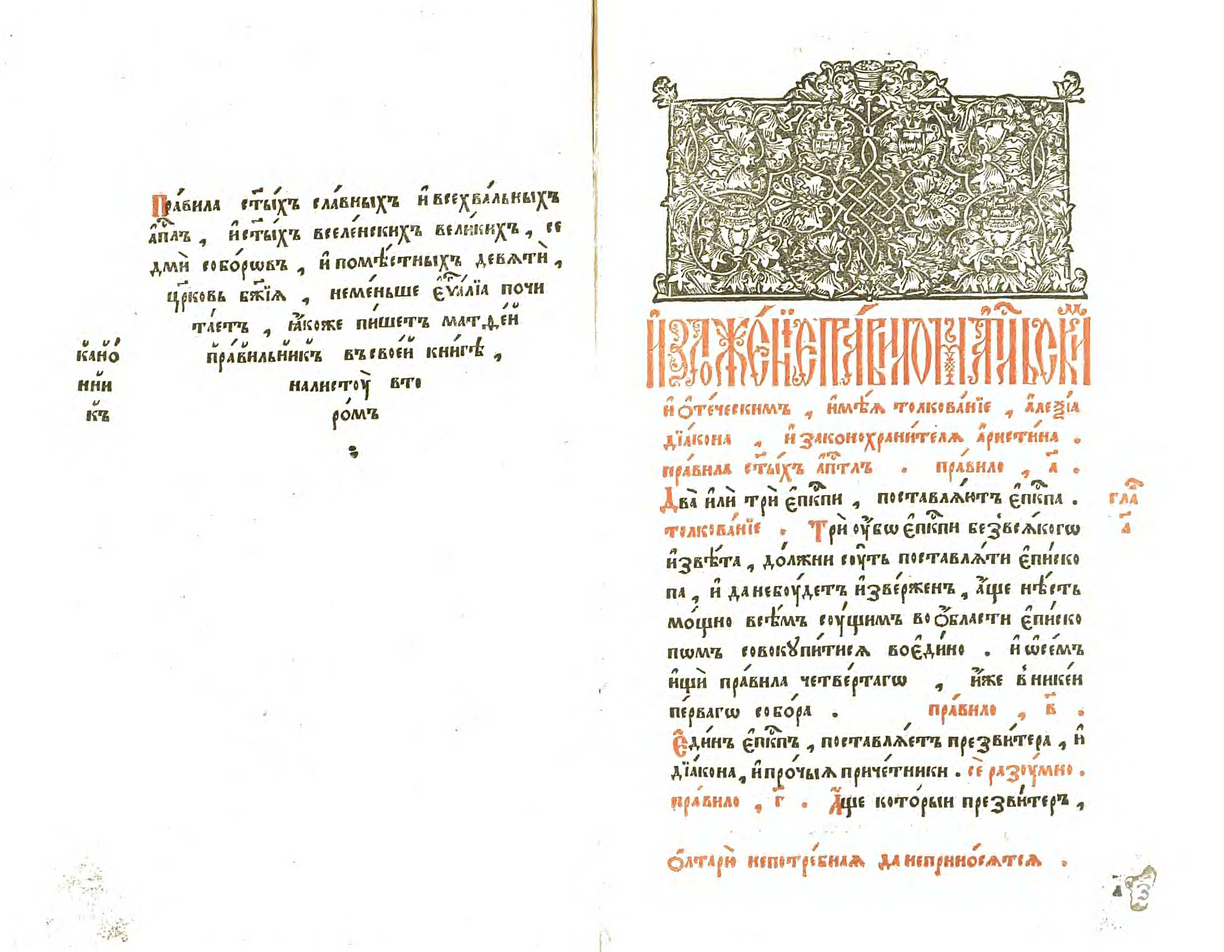 Пра́вила ст҃ы́хъ сла́вныхъ и҆всехва́льныхъ
а҆пⷭ҇лъ , и҆ст҃ы́хъ вселе́нскихъ вели́кихъ , се
дмѝ собо́рѡвъ , и҆помѣ́стныхъ девятѝ ,
цр҃ковь бж҃їѧ , неме́ньше є҆ѵⷢ҇алїа почи
та́етъ , ꙗ҆́коже пи́шетъ матѳе́й
пра́вильникъ въсвое́й кни́гѣ ,
налистоу̀ вто
ро́мъ
кано́
ни
къ
и҆ ѻ҆те́ческимъ , и҆мѣ́ѧ толкова́нїе , а҆леѯі́а
дїа́кона , и҆ законохрани́телѧ а҆ристи́на .
пра́вила ст҃ы́хъ а҆пⷭ҇тлъ . пра́вило , а҃ .
Два̀ и҆лѝ трѝ є҆пⷭ҇кпи , поставлѧ́ютъ є҆пⷭ҇кпа .
толкова́нїе . Трѝ оу҆́бѡ є҆пⷭ҇кпи безвсѧ́когѡ
и҆звѣ́та , до́лжни соу́ть поставлѧ́ти є҆пи́ско
па , и҆ данебоу́детъ и҆зве́рженъ , а҆́ще нѣ́сть
мо́щно всѣ́мъ соу́щимъ во ѻ҆́бласти є҆пи́ско
пѡмъ совокꙋпи́тисѧ воє҆ди́но . и҆ ѡ҆се́мъ
и҆щѝ пра́вила четве́ртагѡ , и҆́же в҆нике́и
пе́рвагѡ собо́ра . пра́вило , в҃ .
Є҆ди́нъ є҆пⷭ҇кпъ , поставлѧ́етъ презви́тера , и҆
дїа́кона , и҆про́чыѧ приче́тники . сѐ разоу́мно .
пра́вило , г҃ . А҆́ще кото́рыи презви́теръ ,
ѻ҆лтарю̀ непотре́бнаѧ да неприно́сѧтсѧ .
глаⷡ҇
а҃